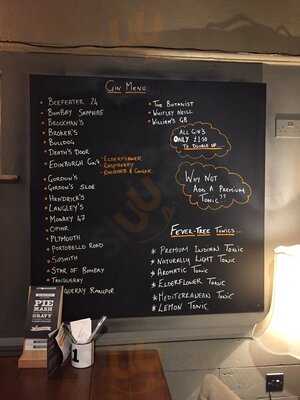 Gin Menu
Beefeater 24
Bombay Sapphire
Brockman's
Broker's
Bulldog
Death's Door
Edinburgh Gins
Elderflower
Raspberry
Rhubarb & Ginger
Gordon's
Gordon's Sloe
Hendrick's
Langley's
Monkey 47
Opihr
Plymouth
Portobello Road
Sipsmith
Star of Bombay
Tanqueray
Tanqueray Rangpur
The Botanist
Whitley Neill
William's GB
All Gin's
Only £1.50
To Double Up
Why Not
Add A Premium
Tonic??
Fever-Tree Tonics...
* Premium Indian Tonic
* Naturally Light Tonic
* Aromatic Tonic
* Elderflower Tonic
* Mediterranean Tonic
* Lemon Tonic
PIE
MASH
GRAVY
1